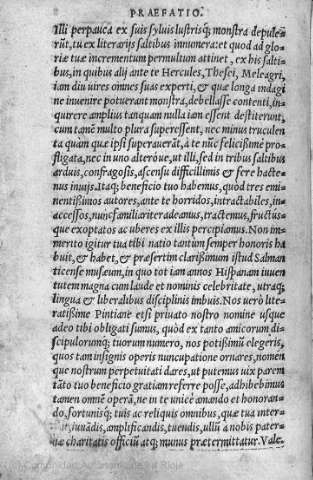 PRAEFATIO.
Illi perpauca ex suis syluis lustrisq; monstra depule=
rūt, tu ex literarijs saltibus innumera: et quod ad glo=
riæ tuæ incrementum permultum attinet, ex his salti=
bus, in quibus alij ante te Hercules, Thesei, Meleagri,
iam diu uires omnes suas experti, & quæ longa indagi
ne inuenire potuerant monstra, debellasse contenti, in=
quirere amplius tanquam nulla iam essent destiterunt,
cum tamē multo plura superessent, nec minus truculen
ta quàm quæ ipsi superauerāt, à te nūc felicissimè pro=
fligata, nec in uno alteróue, ut illi, sed in tribus saltibus
arduis, confragosis, ascensu difficillimis & ferè hacte=
nus inuijs. Itaq; beneficio tuo habemus, quòd tres emi=
nentißimos autores, ante te horridos, intractabiles, in=
accessos, nunc familiariter adeamus, tractemus, fructūs=
que exoptatos ac uberes ex illis percipiamus. Non im=
merito igitur tua tibi natio tantum semper honoris ha
buit, & habet, & præsertim clarißimum istud Salman
ticense musæum, in quo tot iam annos Hispanam iuuen
tutem magna cum laude et nominis celebritate, utraq;
lingua & liberalibus disciplinis imbuis. Nos uerò lite=
ratißime Pintiane etsi priuato nostro nomine usque
adeo tibi obligati sumus, quòd ex tanto amicorum di=
scipulorumq; tuorum numero, nos potißimū elegeris,
quos tam insignis operis nuncupatione ornares, nomen
que nostrum perpetuitati dares, ut putemus uix paren
tū̄to tuo beneficio gratiam referre posse, adhibebimus
tamen omnē operā, ne in te unicè amando et honoran=
do, fortunisq; tuis ac reliquis omnibus, quæ tua inter=
iuuādis, amplificandis, tuendis, ullū à nobis pater=
næ charitatis officiū atq; munus prætermittatur. Vale.
Comunidad Autónoma de La Rioja